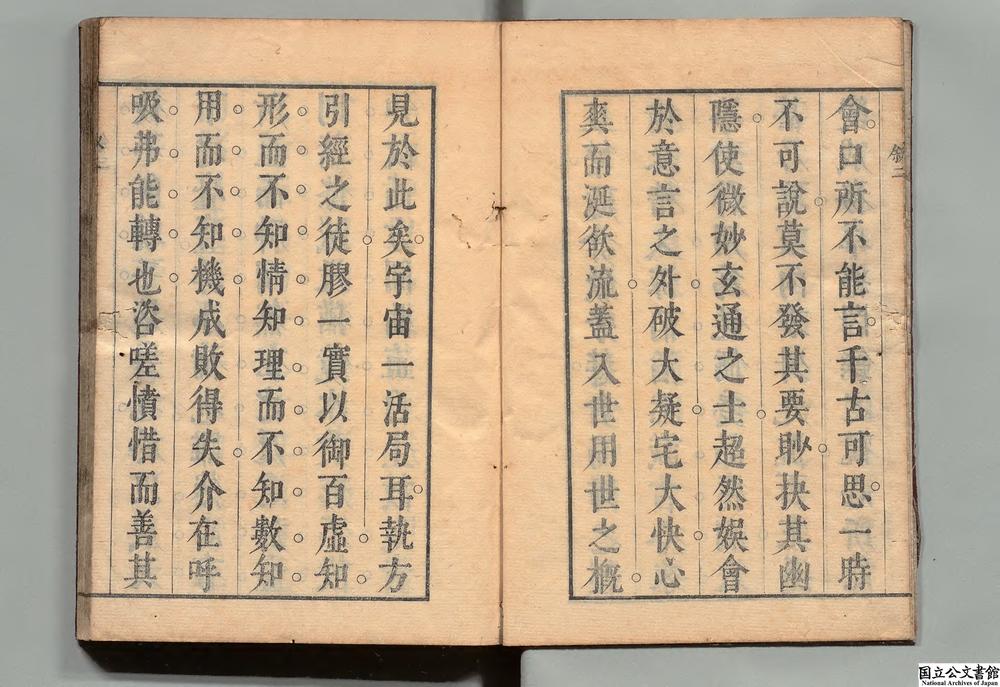 會口所不能言千古可思一時
不可說莫不發其要眇抉其幽
隱使微妙玄通之士超然娛會
於意言之外破大疑宅大快心
爽而涎欲流蓋入世用世之概
見於此矣宇宙一活局耳執方
引經之徒膠一實以御百虛知
形而不知情知理而不知數知
用而不知機成敗得失介在呼
吸弗能轉也咨嗟憤惜而善其
国立公文書館
National Archives of Japan